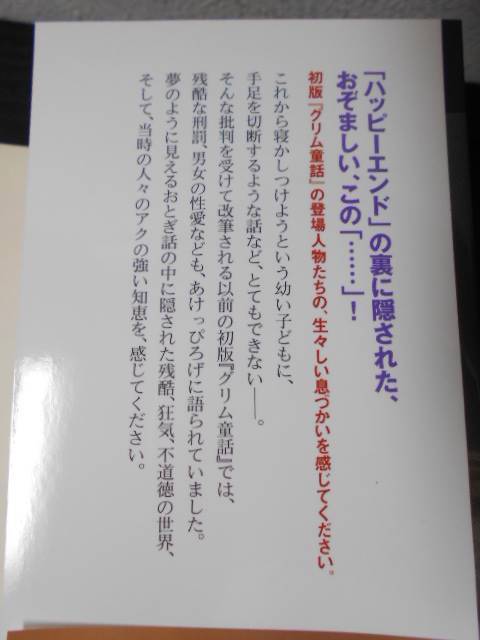 「ハッピーエンド」の裏に隠された、
おぞましい、この「……」！
初版『グリム童話』の登場人物たちの、生々しい息づかいを感じてください。
これから寝かしつけようという幼い子どもに、
手足を切断するような話など、とてもできない――。
そんな批判を受けて改筆される以前の初版『グリム童話』では、
残酷な刑罰、男女の性愛なども、あけっぴろげに語られていました。
夢のように見えるおとぎ話の中に隠された残酷、狂気、不道徳の世界、
そして、当時の人々のアクの強い知恵を、感じてください。